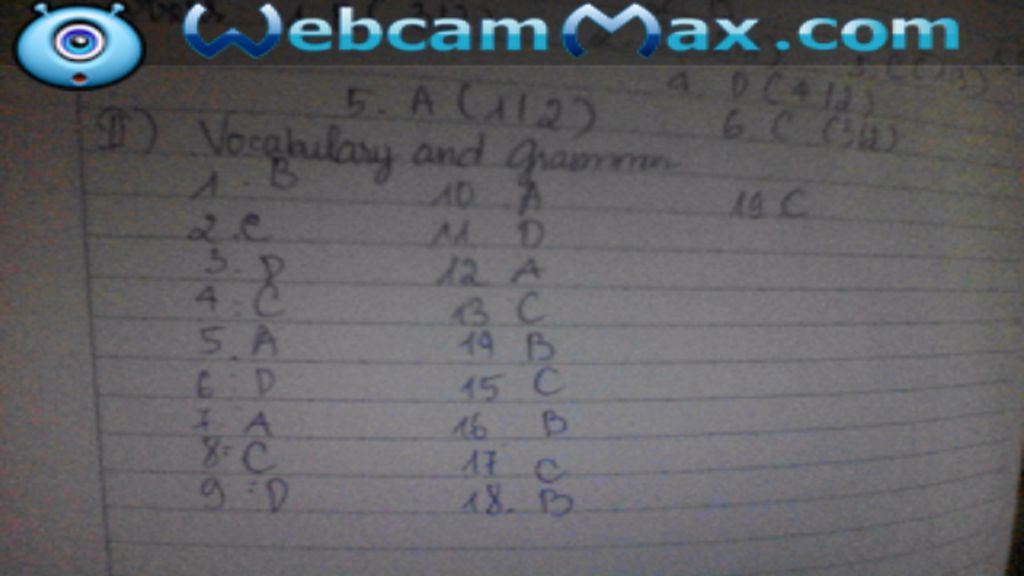 WebcamMax.com
4. D (4/2)
5. A (1/2)
6. C (3/4)
II) Vocabulary and Grammar
1. B 10 A 19 C
2. C 11 D
3. D 12 A
4. C 13 C
5. A 14 B
6. D 15 C
7. A 16 B
8. C 17 C
9. D 18. B